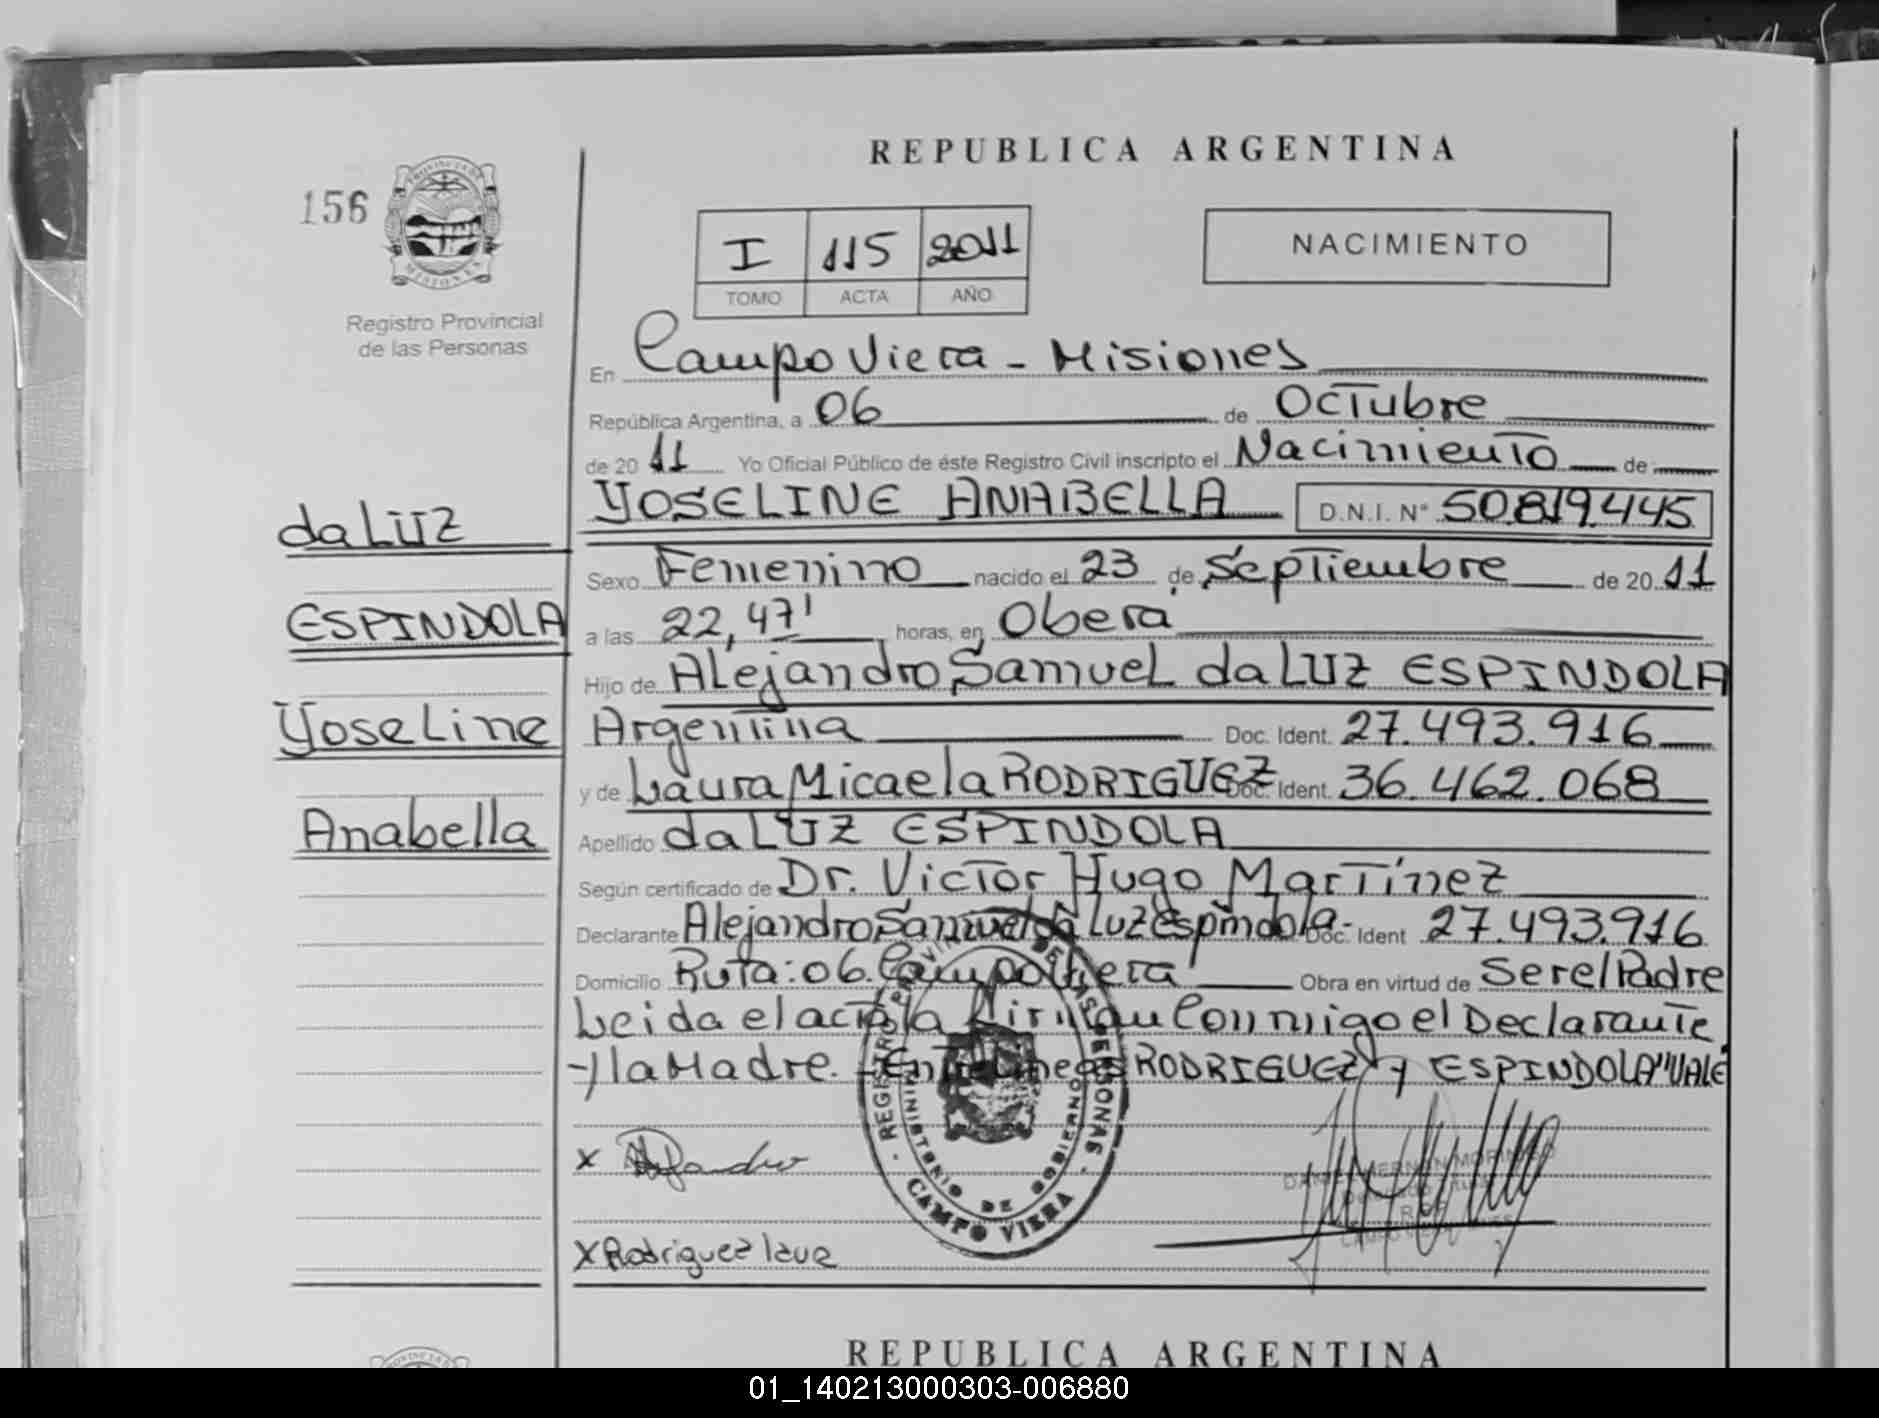 REPUBLICA ARGENTINA
156
PROVINCIA DE
MISIONES
Registro Provincial
de las Personas
I 115 2011
TOMO ACTA AÑO
NACIMIENTO
En Campo Viera - Misiones
República Argentina, a 06 de Octubre
de 20 11 Yo Oficial Público de éste Registro Civil inscripto el Nacimiento de
YOSELINE ANABELLA D.N.I. N° 50.819.445
da LUZ
ESPINDOLA
Yoseline
Anabella
Sexo Femenino nacido el 23 de Septiembre de 20 11
a las 22,47' horas, en Obera
Hijo de Alejandro Samuel da LUZ ESPINDOLA
Argentina Doc. Ident. 27.493.916
y de Laura Micaela RODRIGUEZ Doc. Ident. 36.462.068
Apellido da LUZ ESPINDOLA
Según certificado de Dr. Victor Hugo Martínez
Declarante Alejandro Samuel da Luz Espindola- Doc. Ident 27.493.916
Domicilio Ruta: 06. Campo Viera Obra en virtud de Ser el Padre
Leida el acta la Firman Conmigo el Declarante
-y la Madre. -Entre Lineas RODRIGUEZ y ESPINDOLA "VALE"
REGISTRO PROVINCIAL DE LAS PERSONAS
MINISTERIO DE GOBIERNO
CAMPO VIERA
x Alejandro
DANIEL HERNAN MORINIGO
x Rodriguez laura
REPUBLICA ARGENTINA
01_140213000303-006880